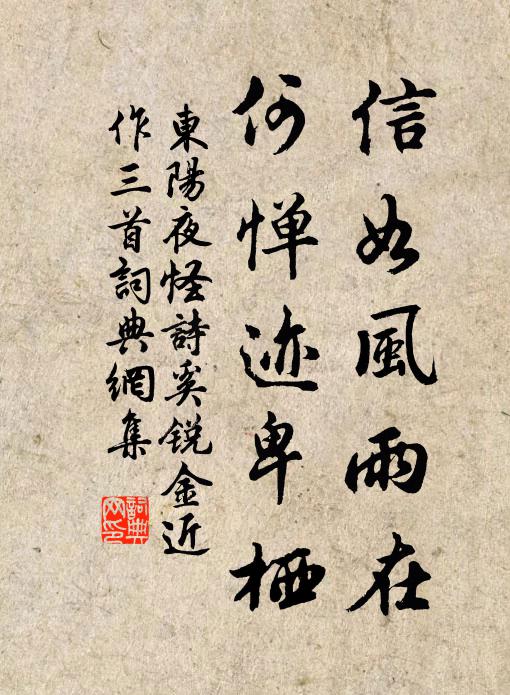 信如風雨在
何惮迹卑栖
東陽夜怪詩奚锐金近
作三首詞典網集
詞典
网印